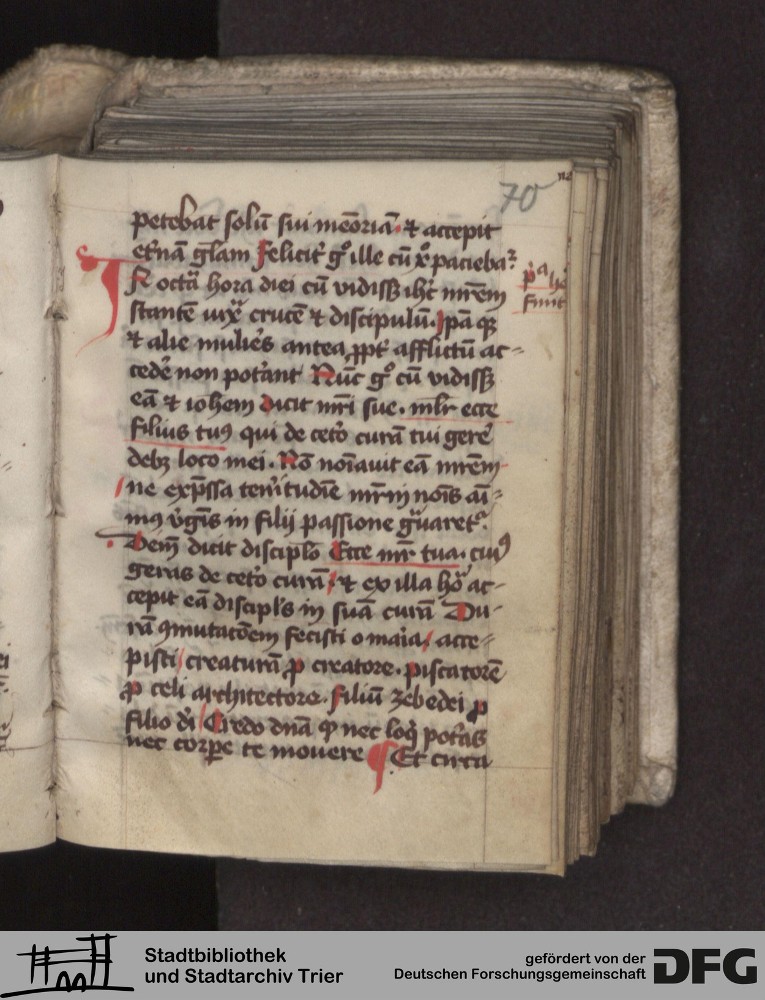 70
petebat solū sui meōriā. ⁊ accepit
et̓nā gl̄am felicit̓ gͦ ille cū xͦ pacieba
octā hora diei cū vidiss ihc̄ mr̄em
stantē iux̄ crucē ⁊ discipulū. Ip̄a qȝ
⁊ alie mulie̓s antea ꝓpt̓ afflictū ac-
cede̓ non pot̓ant Nūc gͦ cū vidiss
eā ⁊ ioh̄em dicit mr̄i sue. ml̄r ecce
filius tuꝰ qui de cet̓o curā tui gere̓
debȝ loco mei. Nō noīauit eā mr̄em
ne exp̄ssa ten̓itudīe mr̄ni noīs aī-
mꝰ v̓gīs in filij passione g̓uaret
Dem̄ dicit discipl̄o Ecce mr̄ tua. cuiꝰ
geras de cet̓o curā. ⁊ ex illa ho̓ ac-
cepit eā discipl̄s in suā curā Du-
rā ꝯmutatōem fecisti o maīa, acce-
pisti creaturā ꝓ creatore. piscatorē
ꝓ celi architectore. filiū zebedei ꝓ
filio di̓ Credo dn̄a ꝙ nec loq̓ pot̓as
nec corꝑe te mouere ¶ Et circa
Stadtbibliothek
und Stadtarchiv Trier
gefördert von der
Deutschen Forschungsgemeinschaft
DFG